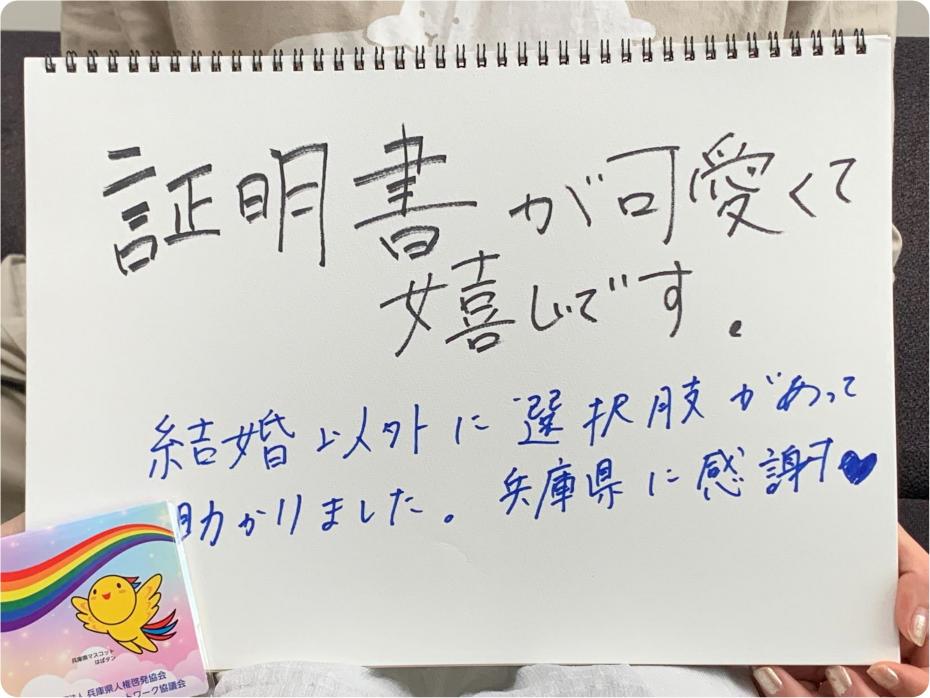 証明書が可愛くて
嬉しいです。
結婚以外に選択肢があって
助かりました。兵庫県に感謝♥
兵庫県マスコット
はばタン
人 兵庫県人権啓発協会
トワーク協議会